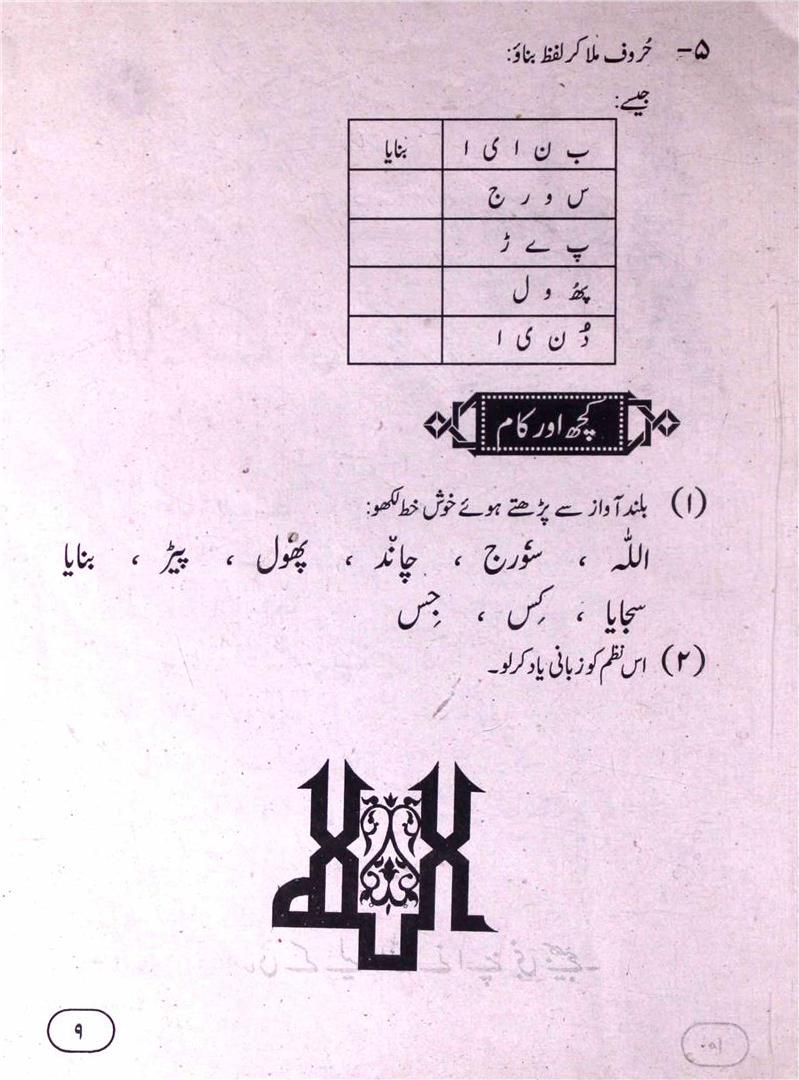 ۵- حُروف ملا کر لفظ بناؤ:
جیسے:
ب ن ا ی ا بنایا
س و ر ج
پ ے ڑ
پھُ و ل
دُ ن ی ا
کچھ اور کام
(۱) بلند آواز سے پڑھتے ہوئے خوش خط لکھو:
اللّٰہ ، سوٗرج ، چاند ، پھوٗل ، پیڑ ، بنایا
سجایا ، کِس ، جِس
(۲) اس نظم کو زبانی یاد کرلو۔
۹